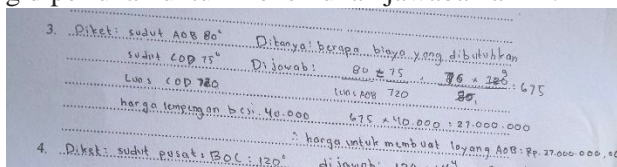 3. Diket: sudut AOB 80° Ditanya: berapa biaya yang dibutuhkan
sudut COD 75° Dijawab: 80 = 75 : 75 x 720 9 : 675
Luas COD 720 Luas AOB 720 80
harga lempengan besi. 40.000 675 x 40.000 : 27.000.000
∴ harga untuk membuat loyang AOB: Rp. 27.000.000,00
4. Diket: sudut pusat: BOC: 120° dijawab: